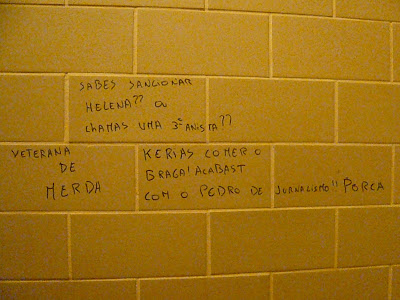 SABES SANCIONAR
HELENA?? OU
CHAMAS UMA 3ºANISTA??
VETERANA
DE
MERDA
KERIAS COMER O
BRAGA! ACABAST
COM O PEDRO DE JORNALISMO!! PORCA